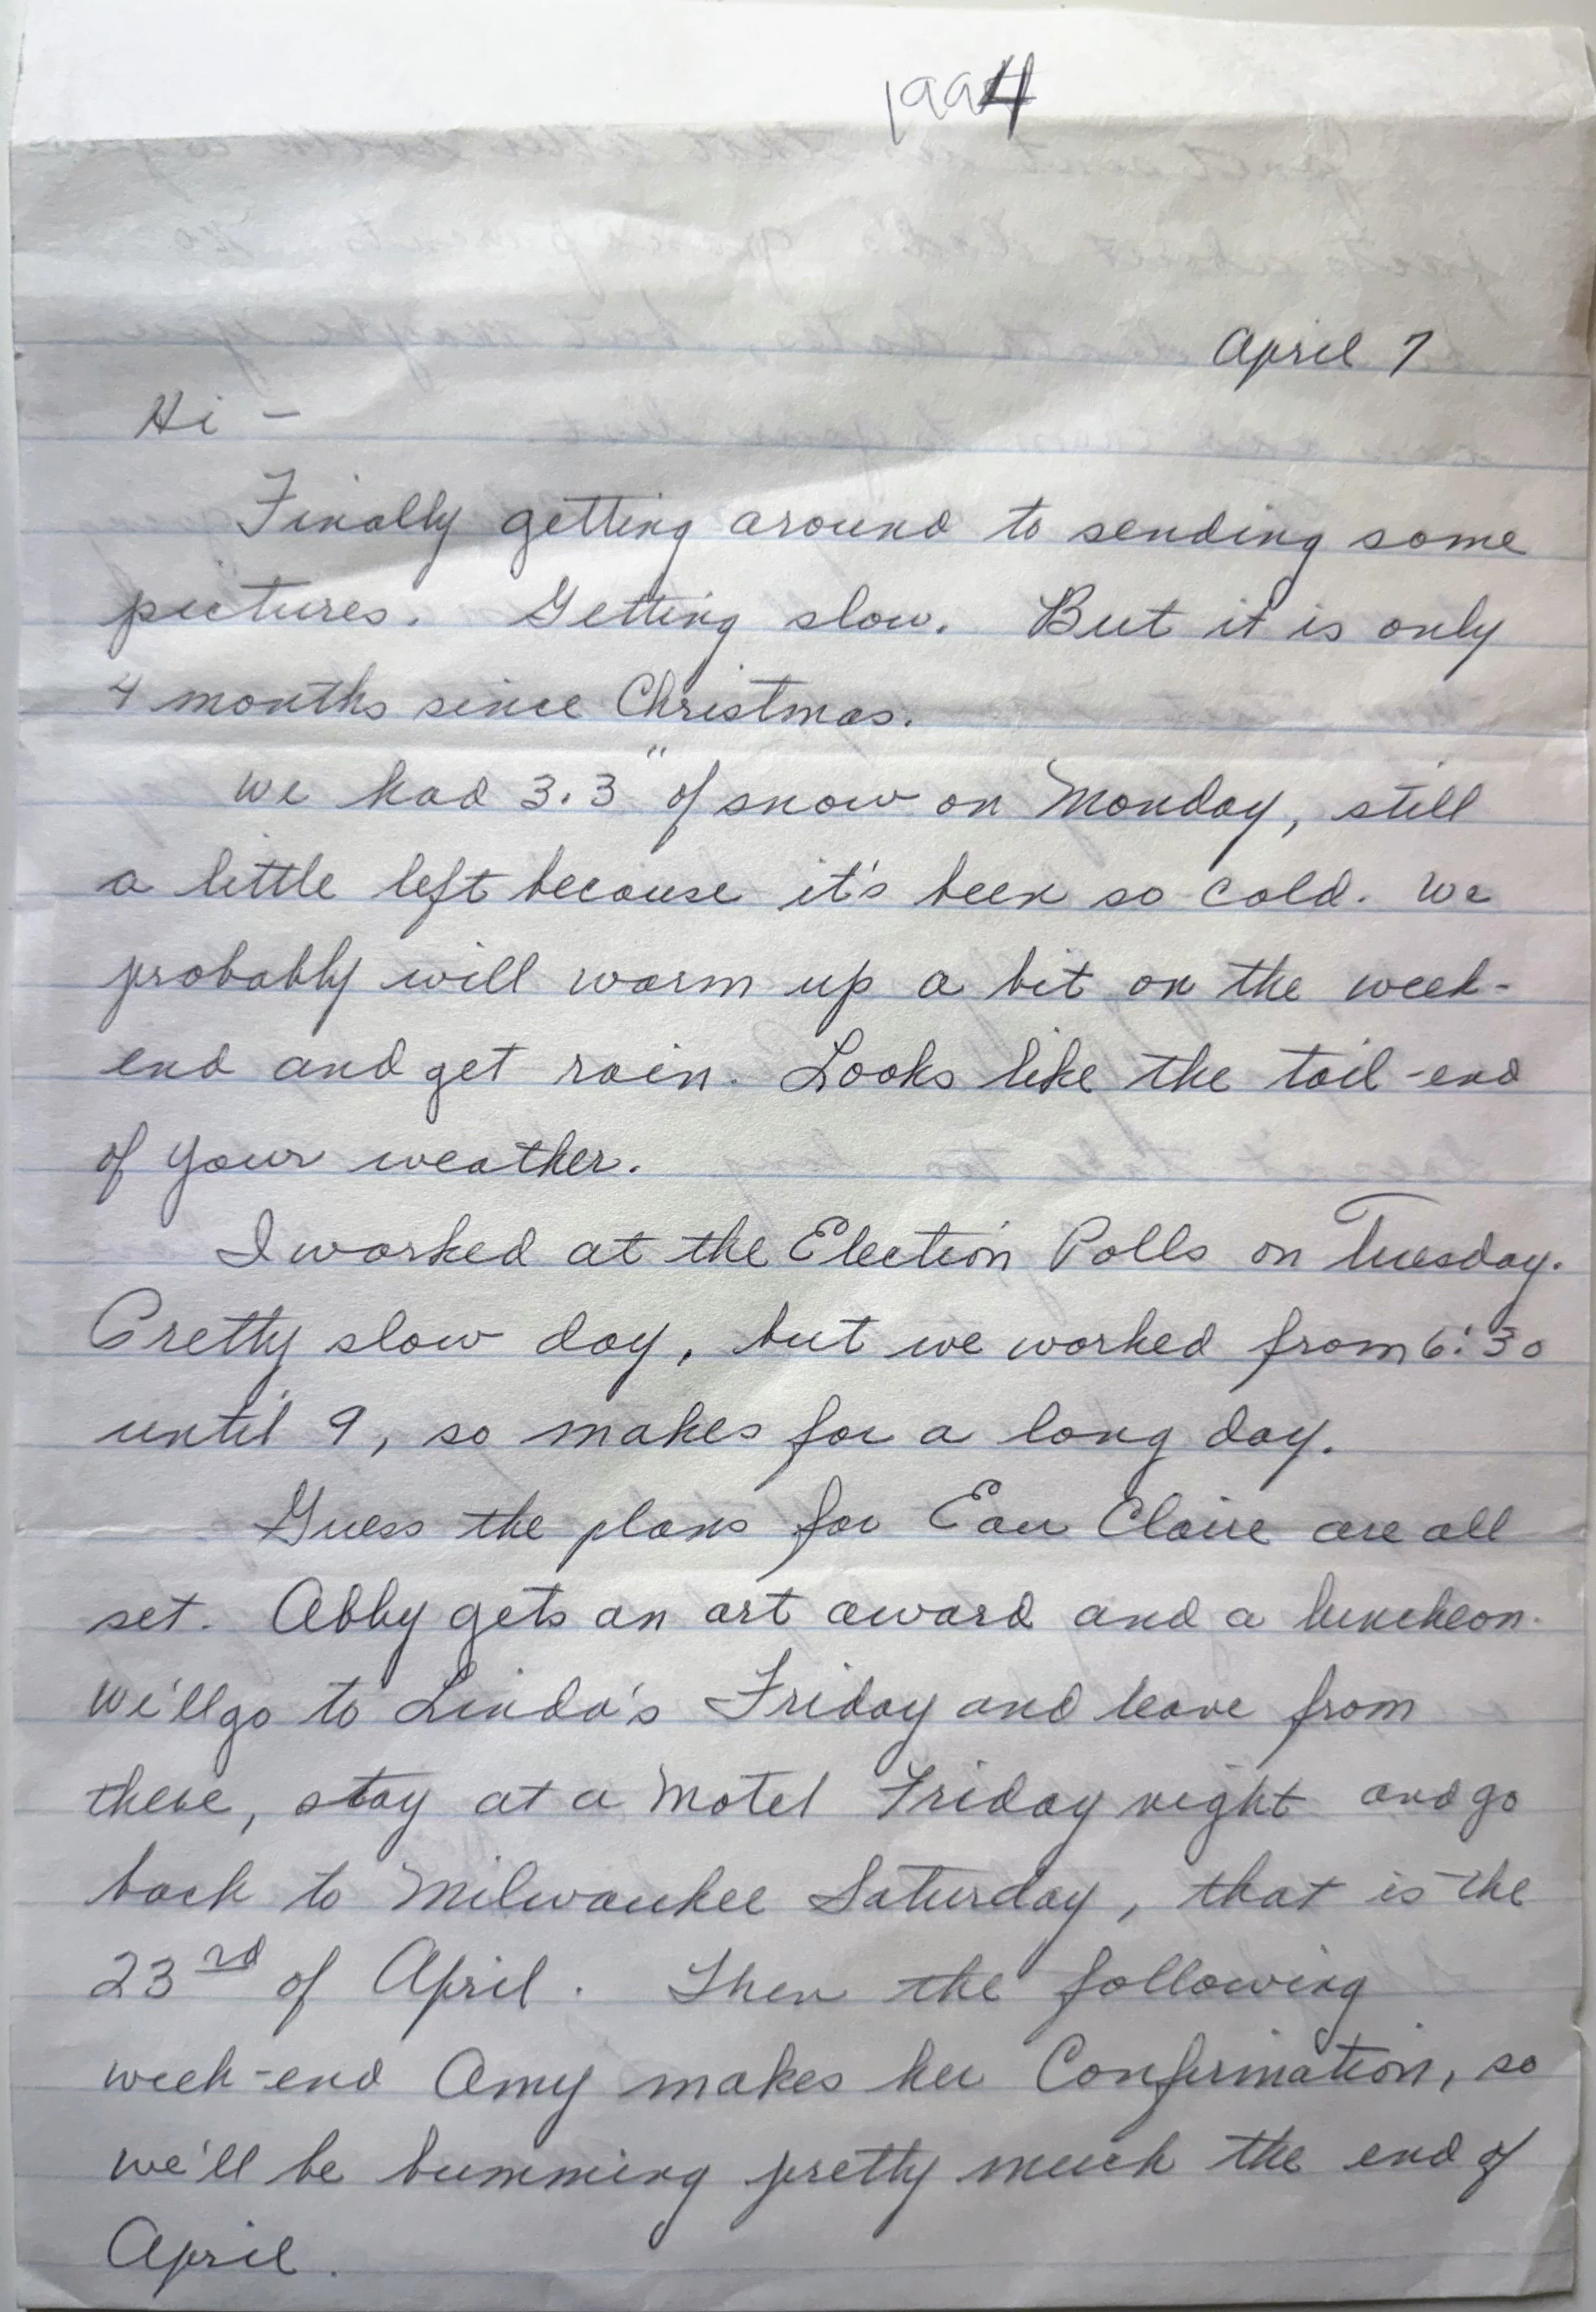 1994
April 7
Hi -
Finally getting around to sending some
pictures. Getting slow. But it is only
4 months since Christmas.
We had 3.3" of snow on Monday, still
a little left because it's been so cold. We
probably will warm up a bit on the week-
end and get rain. Looks like the tail-end
of your weather.
I worked at the Election Polls on Tuesday.
Pretty slow day, but we worked from 6:30
until 9, so makes for a long day.
Guess the plans for Eau Claire are all
set. Abby gets an art award and a luncheon.
We'll go to Linda's Friday and leave from
there, stay at a Motel Friday night and go
back to Milwaukee Saturday, that is the
23rd of April. Then the following
week-end Amy makes her Confirmation, so
we'll be bumming pretty much the end of
April.